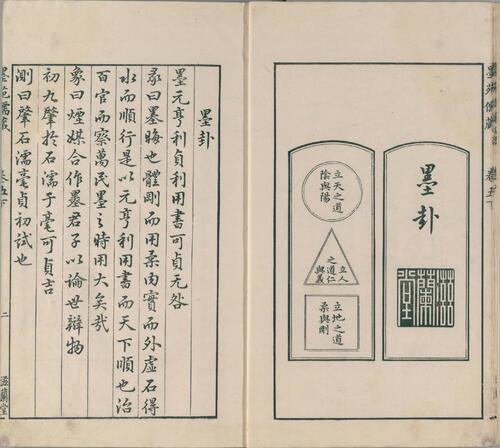 墨卦
滋蘭堂
立天之道
陰與陽
立人
之道仁
與義
立地之道
柔與剛
墨卦
墨元亨利貞利用書可貞无咎
彖曰墨晦也體剛而用柔內實而外虛石得
水而順行是以元亨利用書而天下順也治
百官而察萬民墨之時用大矣哉
象曰煙媒合作墨君子以論世辯物
初九肇於石濡于毫可貞吉
測曰肇石濡毫貞初試也
墨苑儒藏 卷五下 二 滋蘭堂